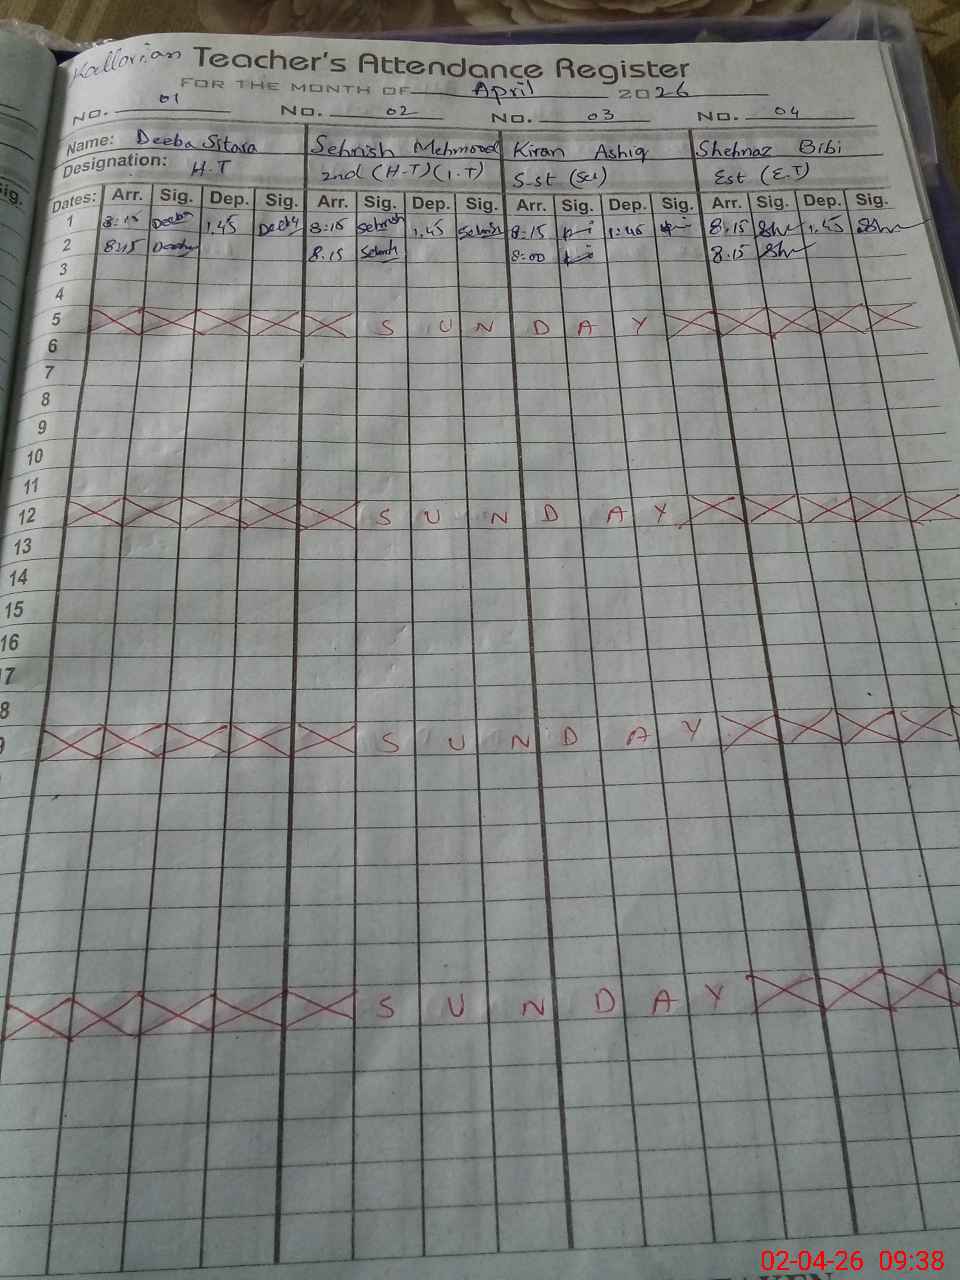 Kallorian Teacher's Attendance Register
FOR THE MONTH OF April 2026
NO. 01 NO. 02 NO. 03 NO. 04
Name: Deeba Sitara Sehrish Mehmood Kiran Ashiq Shehnaz Bibi
Designation: H.T 2nd (H.T) (I.T) S-st (Sci) Est (E.T)
Dates: Arr. Sig. Dep. Sig. Arr. Sig. Dep. Sig. Arr. Sig. Dep. Sig. Arr. Sig. Dep. Sig.
1 8:15 Deeba 1.45 Deeba 8:15 Sehrish 1.45 Sehrish 8:15 1:45 8.15 1.45
2 8:15 Deeba 8.15 Sehrish 8:00 8.15
3
4
5 SUNDAY
6
7
8
9
10
11
12 SUNDAY
13
14
15
16
7
8
9 SUNDAY
SUNDAY
02-04-26 09:38